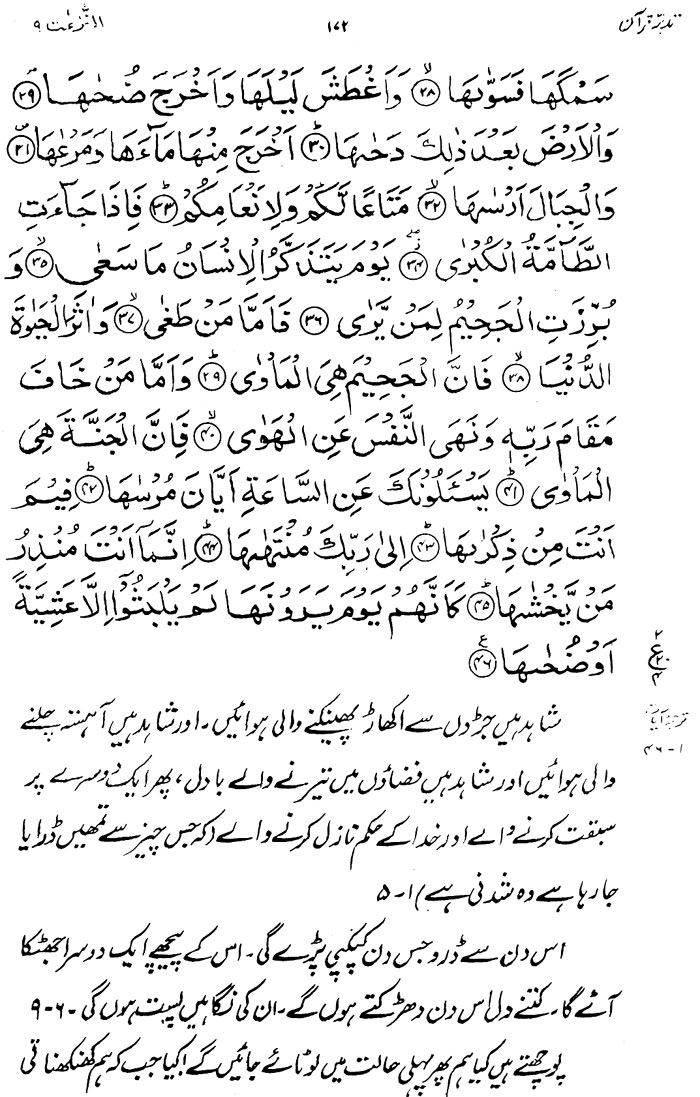 تدبرِ قرآن ۱۷۲ النّٰزعٰت ۹
سَمْكَهَا فَسَوّٰىهَا ﴿۲۸﴾ وَاَغْطَشَ لَيْلَهَا وَاَخْرَجَ ضُحٰىهَا ﴿۲۹﴾
وَالْاَرْضَ بَعْدَ ذٰلِكَ دَحٰىهَا ﴿۳۰﴾ اَخْرَجَ مِنْهَا مَآءَهَا وَمَرْعٰىهَا ﴿۳۱﴾
وَالْجِبَالَ اَرْسٰىهَا ﴿۳۲﴾ مَتَاعًا لَّكُمْ وَلِاَنْعَامِكُمْ ﴿۳۳﴾ فَاِذَا جَآءَتِ
الطَّآمَّةُ الْكُبْرٰى ﴿۳۴﴾ يَوْمَ يَتَذَكَّرُ الْاِنْسَانُ مَا سَعٰى ﴿۳۵﴾ وَ
بُرِّزَتِ الْجَحِيْمُ لِمَنْ يَّرٰى ﴿۳۶﴾ فَاَمَّا مَنْ طَغٰى ﴿۳۷﴾ وَاٰثَرَ الْحَيٰوةَ
الدُّنْيَا ﴿۳۸﴾ فَاِنَّ الْجَحِيْمَ هِيَ الْمَاْوٰى ﴿۳۹﴾ وَاَمَّا مَنْ خَافَ
مَقَامَ رَبِّهٖ وَنَهَى النَّفْسَ عَنِ الْهَوٰى ﴿۴۰﴾ فَاِنَّ الْجَنَّةَ هِيَ
الْمَاْوٰى ﴿۴۱﴾ يَسْـَٔلُوْنَكَ عَنِ السَّاعَةِ اَيَّانَ مُرْسٰىهَا ﴿۴۲﴾ فِيْمَ
اَنْتَ مِنْ ذِكْرٰىهَا ﴿۴۳﴾ اِلٰى رَبِّكَ مُنْتَهٰىهَا ﴿۴۴﴾ اِنَّمَآ اَنْتَ مُنْذِرُ
مَنْ يَّخْشٰىهَا ﴿۴۵﴾ كَاَنَّهُمْ يَوْمَ يَرَوْنَهَا لَمْ يَلْبَثُوْٓا اِلَّا عَشِيَّةً
اَوْ ضُحٰىهَا ﴿۴۶﴾
۲
ع
۲۰
۴
ترجمۂ آیات
۱-۴۶
شاہد ہیں جڑوں سے اکھاڑ پھینکنے والی ہوائیں۔ اور شاہد ہیں آہستہ چلنے
والی ہوائیں اور شاہد ہیں فضاؤں میں تیرنے والے بادل، پھر ایک دوسرے پر
سبقت کرنے والے اور خدا کے حکم نازل کرنے والے (کہ جس چیز سے تمھیں ڈرایا
جا رہا ہے وہ شدنی ہے) ۱-۵
اس دن سے ڈرو جس دن کپکپی پڑے گی۔ اس کے پیچھے ایک دوسرا جھٹکا
آئے گا۔ کتنے دل اس دن دھڑکتے ہوں گے۔ ان کی نگاہیں پست ہوں گی۔ ۶-۹
پوچھتے ہیں کیا ہم پھر پہلی حالت میں لوٹائے جائیں گے! کیا جب کہ ہم کھنکھناتی